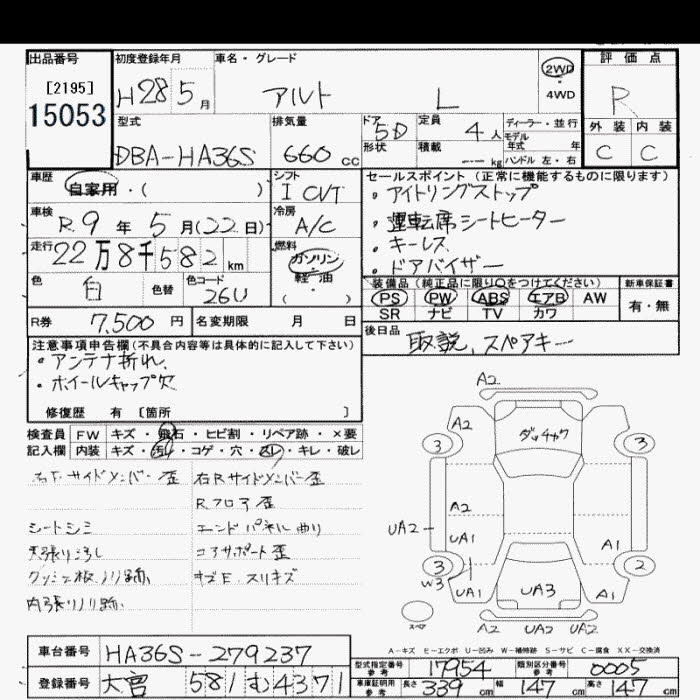 出品番号 初度登録年月 車名・グレード 評価点
[2195] H28 5月 アルト L 2WD・4WD R
15053
型式 排気量 ドア 5D 定員 4人 ディーラー・並行 外装 内装
形状 積載 kg モデル年式 年
DBA-HA36S 660cc ハンドル 左・右 C C
車歴 シフト セールスポイント (正常に機能するものに限ります)
自家用・( ) I CVT ・アイドリングストップ
車検 冷房 ・運転席シートヒーター
R.9年5月(22日) A/C ・キーレス
走行 燃料 ・ドアバイザー
22万8千582km ガソリン・軽油・( )
色 白 色替 色コード 26U 装備品 (純正品に限り○をつけてください) 新車保証書
PS PW ABS エアB AW 有・無
SR ナビ TV カワ
R券 7,500円 名変期限 月 日 後日品 取説、スペアキー
注意事項申告欄(不具合内容等は具体的に記入して下さい)
・アンテナ折れ
・ホイールキャップ欠
修復歴 有 [箇所 ]
検査員 FW キズ・飛石・ヒビ割・リペア跡・×要
記入欄 内装 キズ・汚れ・コゲ・穴・スレ・キレ・破レ
右F.サイドメンバー歪 右Rサイドメンバー歪
Rフロア歪
シートシミ エンドパネル曲り
天張りよごし コアサポート歪
キズE.スリキズ
内張りノリ跡.
A2
A2 ダッチャク
3 3
A2
UA2 UA1 A1
3 2
W3
UA1 UA3 A1
スペア A2 UA2 UA2
A-キズ E-エクボ U-凹み W-補修跡 S-サビ C-腐食 XX-交換済
車台番号 HA36S-279237
型式指定番号 参考 17954 類別区分番号 参考 0005
登録番号 大宮 581 む 4371
車庫証明用 参考 長さ 339cm 幅 147cm 高さ 147cm